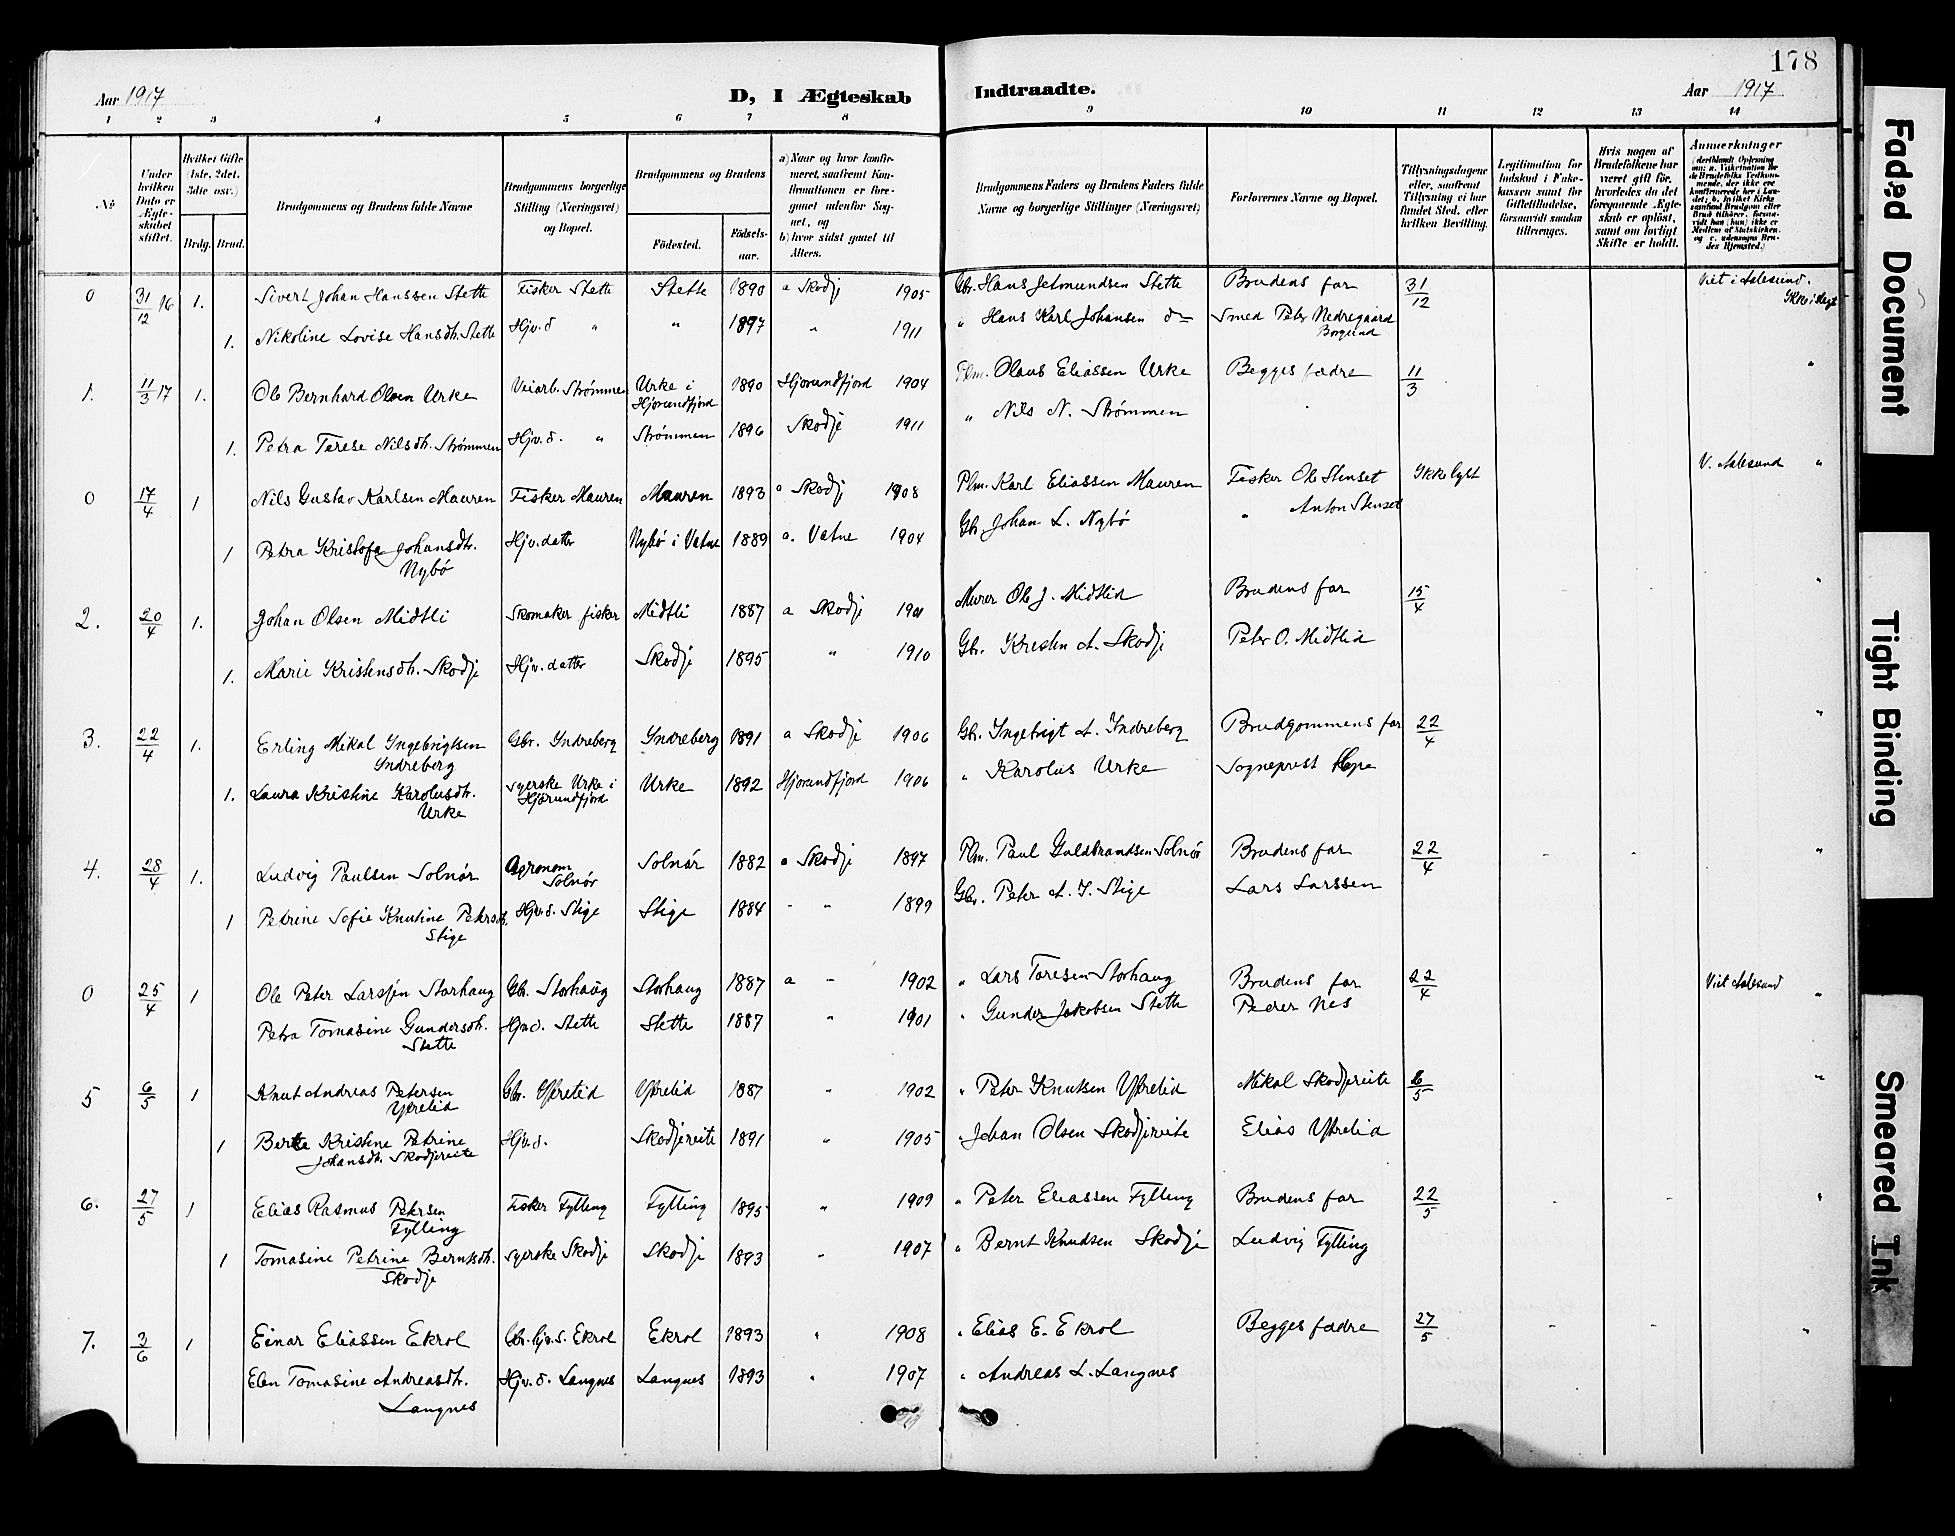 178
Aar 1917
D, I Ægteskab
Indtraadte.
Aar 1917
1 2 3 4 5 6 7 8 9 10 11 12 13 14
No
Under hvilken Dato er Ægteskabet stiftet.
Hvilket Gifte (1ste, 2det, 3die osv.)
Brdg. Brud.
Brudgommens og Brudens fulde Navne
Brudgommens borgerlige Stilling (Næringsvei) og Bopæl.
Brudgommens og Brudens
Födested.
Födselsaar.
a) Naar og hvor konfirmeret, saafremt Konfirmationen er foregaaet udenfor Sognet, og
b) hvor sidst gaaet til Alters.
Brudgommens Faders og Brudens Faders fulde Navne og borgerlige Stillinger (Næringsvei)
Forlovernes Navne og Bopæl.
Tillysningsdagene eller, saafremt Tillysning ei har fundet Sted, efter hvilken Bevilling.
Legitimation for Indskud i Enkekassen samt for Giftetilladelse, forsaavidt saadan tiltrænges.
Hvis nogen af Brudefolkene har været gift før, hvorledes da det foregaaende Ægteskab er oplöst, samt om lovligt Skifte er holdt.
Anmerkninger
0 31/12 16 1. Sivert Johan Hanssen Stette Fisker Stette Stette 1890 a Skodje 1905 Gbr. Hans Jetmundsen Stette Brudens far 31/12 Viet i Aalesund.
Ikke i slegt
1. Nikoline Lovise Hansdtr. Stette Hjv. d " " 1897 " 1911 " Hans Karl Johansen do Smed Peter Nedregaard
Borgund
1. 11/3 17 1. Ole Bernhard Olsen Urke Veiarb. Strømmen Urke i Hjørundfjord 1890 Hjørundfjord 1904 Plm. Olaus Eliassen Urke Begges fædre 11/3 "
1. Petra Terese Nilsdtr. Strømmen Hjv. d. " Strømmen 1896 Skodje 1911 " Nils N. Strømmen
0 17/4 1 Nils Gustav Karlsen Mauren Fisker Mauren Mauren 1893 a Skodje 1908 Plm. Karl Eliassen Mauren Fisker Ole Stenset Ikke lyst V. Aalesund "
1 Petra Kristofa Johansdtr. Nybø Hjv. datter Nybø i Vatne 1889 a. Vatne 1904 Gbr Johan L. Nybø " Anton Stenset
2. 20/4 1. Johan Olsen Midtli Skomaker fisker Midtli 1887 a Skodje 1901 Murer Ole J. Midtlid Brudens far 15/4 "
1. Marie Kristensdtr. Skodje Hjv. datter Skodje 1895 " 1910 Gbr. Kristen A. Skodje Peter O. Midtlid
3. 22/4 1. Erling Mikal Ingebrigtsen Yndreberg Gbr. Yndreberg Yndreberg 1891 a Skodje 1906 Gbr. Ingebrigt A. Yndreberg Brudgommens far 22/4 "
1. Laura Kristine Karolusdtr. Urke syerske Urke i Hjørundfjord Urke 1892 Hjørundfjord 1906 " Karolus Urke Sogneprest Hope
4. 28/4 1. Ludvig Paulsen Solnør Agronom Solnør Solnør 1882 a Skodje 1897 Plm. Paul Guldbrandsen Solnør Brudens far 22/4 - - "
1 Petrine Sofie Knutine Petersdtr. Stige Hjv. d. Stige Stige 1884 - " 1899 Gbr. Peter A. J. Stige Lars Larssen
0 25/4 1 Ole Peter Larssen Storhaug Gbr. Storhaug Storhaug 1887 a " 1902 " Lars Toresen Storhaug Brudens far 22/4 Viet Aalesund "
Petra Tomasine Gundersdtr. Stette Hjv d. Stette Stette 1887 " 1901 " Gunder Jakobsen Stette Peder Nes
5 6/5 1 Knut Andreas Petersen Yksrelid Gbr. Yksrelid Yksrelid 1887 " 1902 " Peter Knutsen Yksrelid Mikal Skodjereite 6/5 "
1 Berte Kristine Petrine Johansdtr. Skodjereite Hjv. d. Skodjereite 1891 " 1905 " Johan Olsen Skodjereite Elias Yksrelid
6. 27/5 1 Elias Rasmus Petersen Fylling Fisker Fylling Fylling 1895 " 1909 " Peter Eliassen Fylling Brudens far 22/5 - - "
1 Tomasine Petrine Berntsdtr. Skodje syerske Skodje Skodje 1893 " 1907 " Bernt Knudsen Skodje Ludvig Fylling
7. 3/6 1 Einar Eliassen Ekrol Gbr. hjv. s. Ekrol Ekrol 1893 " 1908 " Elias E. Ekrol Begges fædre 27/5 - - "
Elen Tomasine Andreasdtr. Langnes Hjv. d. Langnes Langnes 1893 " 1907 " Andreas L. Langnes
Faded Document
Tight Binding
Smeared Ink